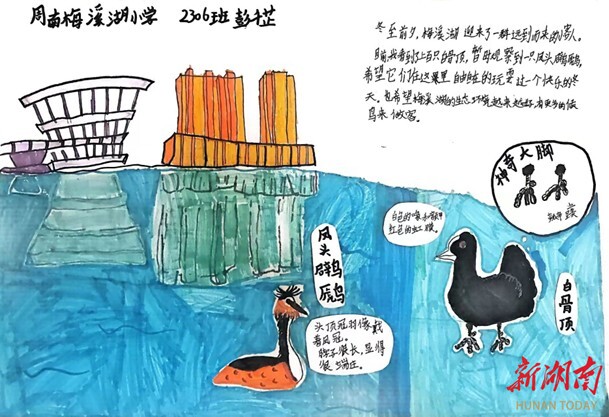 周南梅溪湖小学 2306班 彭芊芷
冬至前夕，梅溪湖迎来了一群远到而来的客人。
目前我看到了上百只白骨顶，暂时观察到一只凤头䴙䴘，
希望它们在这里自由自在的玩耍，过一个快乐的冬
天。也希望梅溪湖的生态环境越来越好，有更多的候
鸟来做客。
神奇大脚
白色的嘴和额甲
红色的虹膜。
白骨顶
凤头䴙䴘
头顶冠羽像戴
着凤冠。
脖子很长，显得
很端庄。
新湖南
HUNAN TODAY